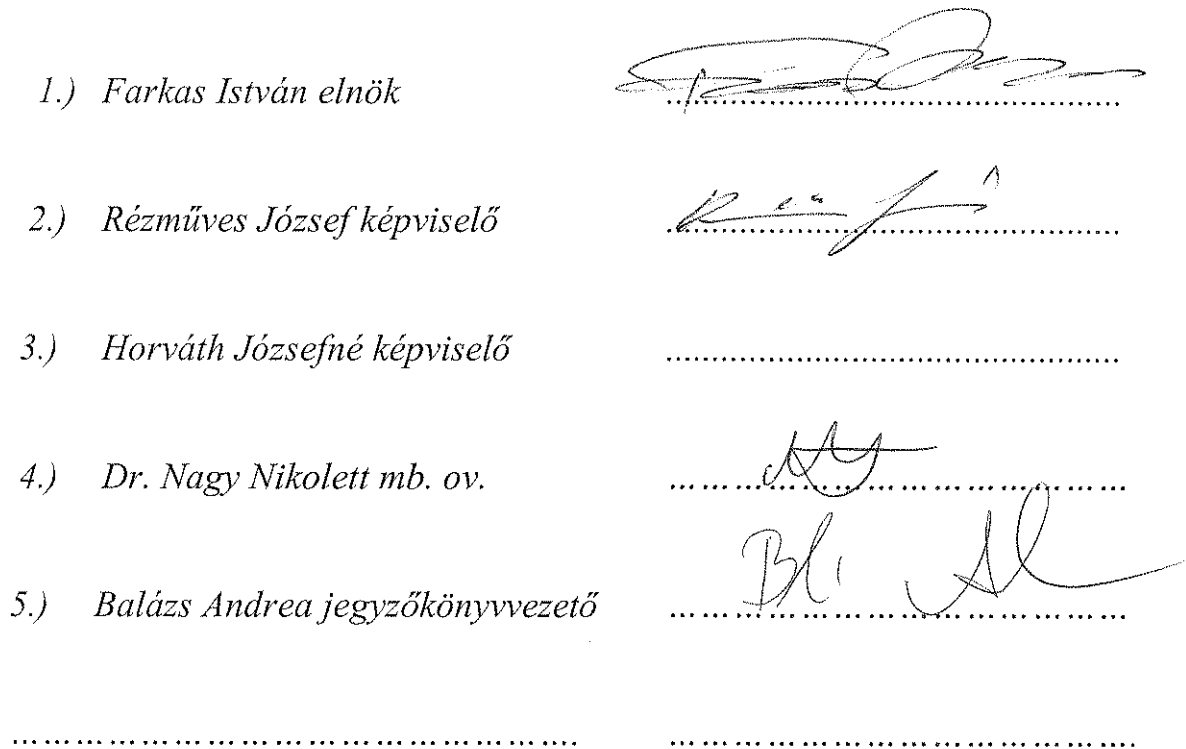 1.) Farkas István elnök ..........
2.) Rézműves József képviselő ..........
3.) Horváth Józsefné képviselő ..........
4.) Dr. Nagy Nikolett mb. ov. ..........
5.) Balázs Andrea jegyzőkönyvvezető ..........